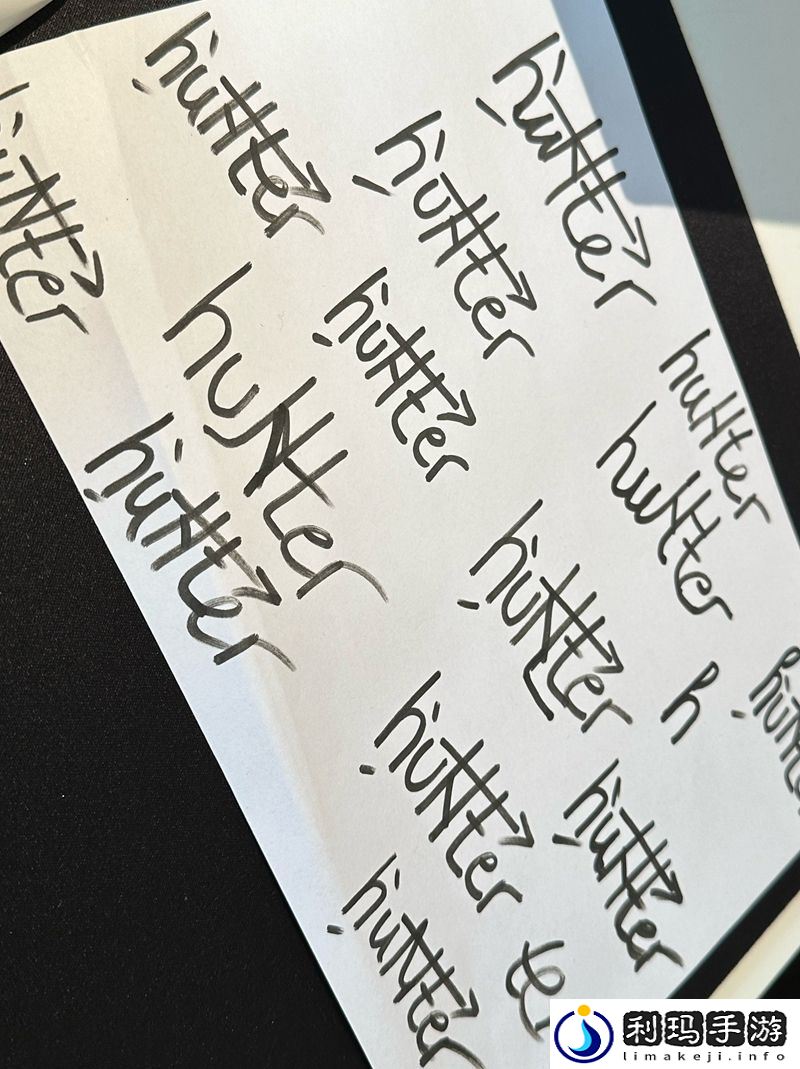 hunter
hunter
hunter
hunter
hunter
hunter
hunter
hunter
hunter
hunter
hunter
h
hunter
hunter
hunter
ter
利玛手游
limakeji.info